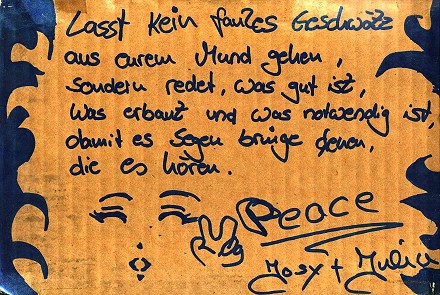 Lasst kein faules Geschwätz
aus eurem Mund gehen,
sondern redet, was gut ist,
was erbaut und was notwendig ist,
damit es Segen bringe denen,
die es hören.
Peace
Mosy + Julia